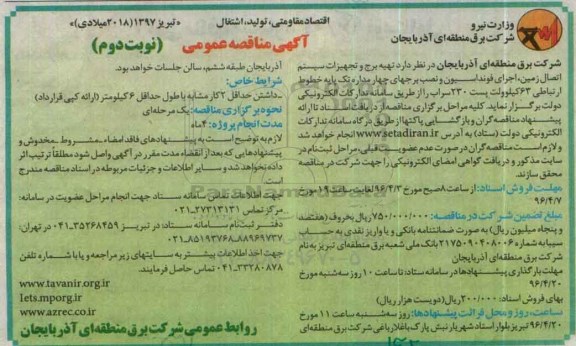 اقتصاد مقاومتی، تولید، اشتغال
«تبریز ۱۳۹۷ (۲۰۱۸ میلادی)»
وزارت نیرو
شرکت برق منطقه‌ای آذربایجان
آگهی مناقصه عمومی (نوبت دوم)
شرکت برق منطقه‌ای آذربایجان در نظر دارد تهیه برج و تجهیزات سیستم
اتصال زمین، اجرای فونداسیون و نصب برجهای چهار مداره تک پایه خطوط
ارتباطی ۶۳ کیلوولت پست ۲۳۰ سراب را از طریق سامانه تدارکات الکترونیکی
دولت برگزار نماید. کلیه مراحل برگزاری مناقصه از دریافت اسناد تا ارائه
پیشنهاد مناقصه‌گران و بازگشایی پاکتها از طریق درگاه سامانه تدارکات
الکترونیکی دولت (ستاد) به آدرس www.setadiran.ir انجام خواهد شد
و لازم است مناقصه گران در صورت عدم عضویت قبلی، مراحل ثبت‌نام در
سایت مذکور و دریافت گواهی امضای الکترونیکی را جهت شرکت در مناقصه
محقق سازند.
مهلت فروش اسناد: از ساعت ۸ صبح مورخ ۹۶/۴/۳ لغایت ساعت ۱۹ مورخ
۹۶/۴/۷
مبلغ تضمین شرکت در مناقصه: ۷۵۰/۰۰۰/۰۰۰ ریال بحروف (هفتصد
و پنجاه میلیون ریال) به صورت ضمانتنامه بانکی و یا واریز نقدی به حساب
سیبا به شماره ۲۱۷۵۰۹۰۴۰۸۰۰۶ بانک ملی شعبه برق منطقه‌ای تبریز به نام
شرکت برق منطقه‌ای آذربایجان
مهلت بارگذاری پیشنهادها در سامانه ستاد: تا ساعت ۱۰ روز سه‌شنبه مورخ
۹۶/۴/۲۰
بهای فروش اسناد: ۲۰۰/۰۰۰ ریال (دویست هزار ریال)
ساعت، روز و محل قرائت پیشنهادها: روز سه‌شنبه ساعت ۱۱ مورخ
۹۶/۴/۲۰ تبریز بلوار استاد شهریار نبش پارک باغلارباغی شرکت برق منطقه‌ای
آذربایجان طبقه ششم، سالن جلسات خواهد بود.
شرایط خاص:
-داشتن حداقل ۲ کار مشابه با طول حداقل ۶ کیلومتر (ارائه کپی قرارداد)
نحوه برگزاری مناقصه: یک مرحله‌ای
مدت انجام پروژه: ۴ ماه
لازم به توضیح است به پیشنهادهای فاقد امضاء، مشروط، مخدوش و
پیشنهادهایی که بعد از انقضاء مدت مقرر در آگهی واصل شود مطلقاً ترتیب اثر
داده نخواهد شد و سایر اطلاعات و جزئیات مربوطه در اسناد مناقصه مندرج
است.
جهت اطلاعات تماس سامانه ستاد جهت انجام مراحل عضویت در سامانه:
مرکز تماس ۲۷۳۱۳۱۳۱-۰۲۱
دفتر ثبت‌نام سامانه ستاد: در تبریز ۳۵۲۶۸۴۵۹-۰۴۱ در تهران:
۸۸۹۶۹۷۳۷-۸۵۱۹۳۷۶۸-۰۲۱
جهت اخذ اطلاعات بیشتر به سایتهای زیر مراجعه و یا با شماره تلفن
۳۳۲۸۰۸۷۸-۰۴۱ تماس حاصل فرمایند.
www.tavanir.org.ir
Iets.mporg.ir
www.azrec.co.ir
روابط عمومی شرکت برق منطقه‌ای آذربایجان